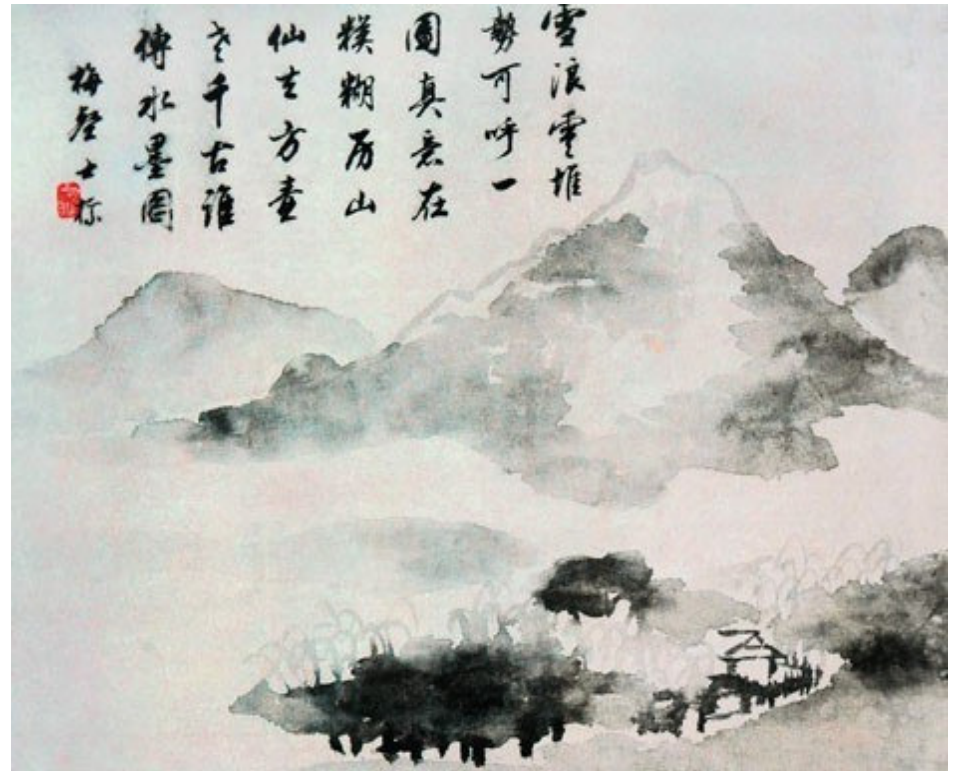 雪浪雲堆
勢可呼一
圖真意在
糢糊房山
仙去方壺
老千古誰
傳水墨圖
梅壑士标